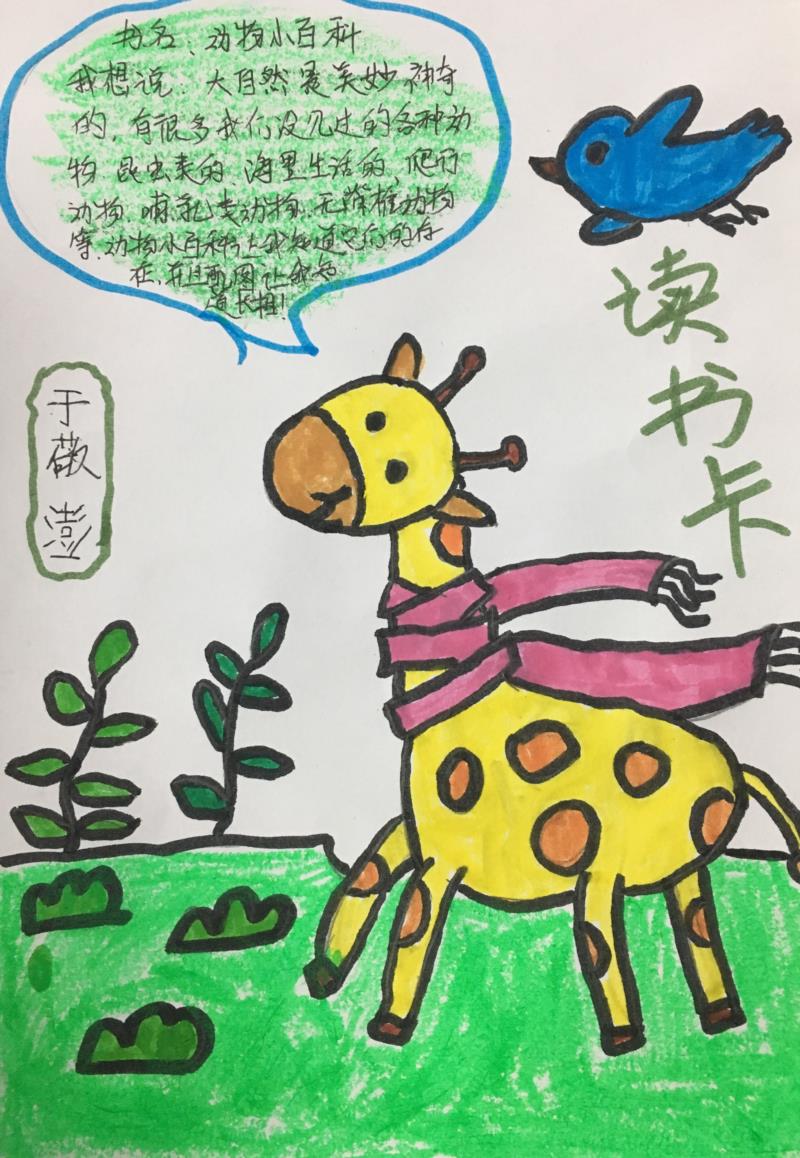 书名、动物小百科
我想说：大自然是美妙神奇
的，有很多我们没见过的各种动
物，昆虫类的，海里生活的，爬行
动物，哺乳类动物，无脊椎动物
等，动物小百科让我知道它们的存
在，并且配图让我知
道长相！
读书卡
于敬澎